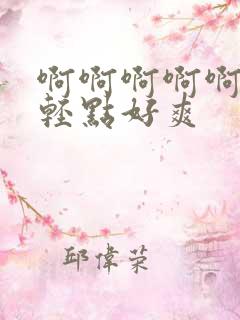 啊啊啊啊啊
輕點好爽
邱偉荣